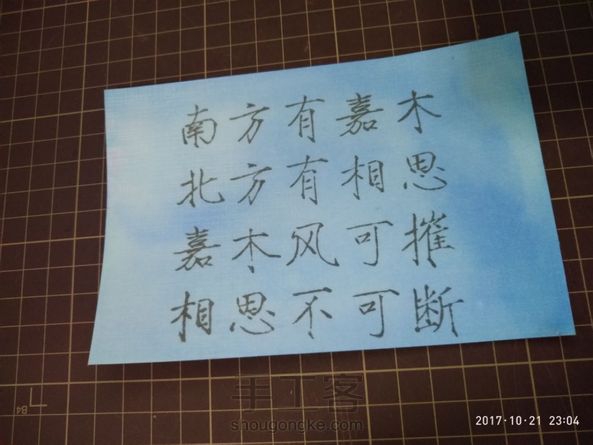 南方有嘉木
北方有相思
嘉木风可摧
相思不可断
B4
手工客
shougongke.com
2017·10·21 23:04